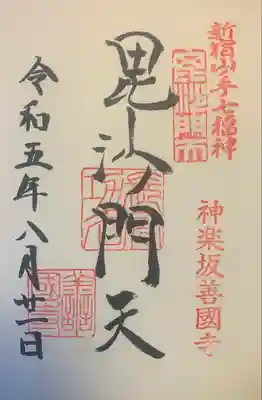 新宿山ノ手七福神
毘沙門天
神楽坂善國寺
令和五年八月廿一日